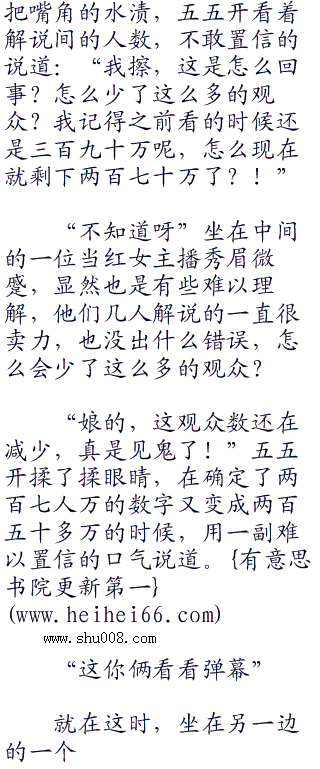 把嘴角的水渍，五五开看着
解说间的人数，不敢置信的
说道：“我擦，这是怎么回
事？怎么少了这么多的观
众？我记得之前看的时候还
是三百九十万呢，怎么现在
就剩下两百七十万了？！”
“不知道呀”坐在中间
的一位当红女主播秀眉微
蹙，显然也是有些难以理
解，他们几人解说的一直很
卖力，也没出什么错误，怎
么会少了这么多的观众？
“娘的，这观众数还在
减少，真是见鬼了！”五五
开揉了揉眼睛，在确定了两
百七人万的数字又变成两百
五十多万的时候，用一副难
以置信的口气说道。{有意思
书院更新第一}
(www.heihei66.com)
www.shu008.com
“这你俩看看弹幕”
就在这时，坐在另一边
的一个